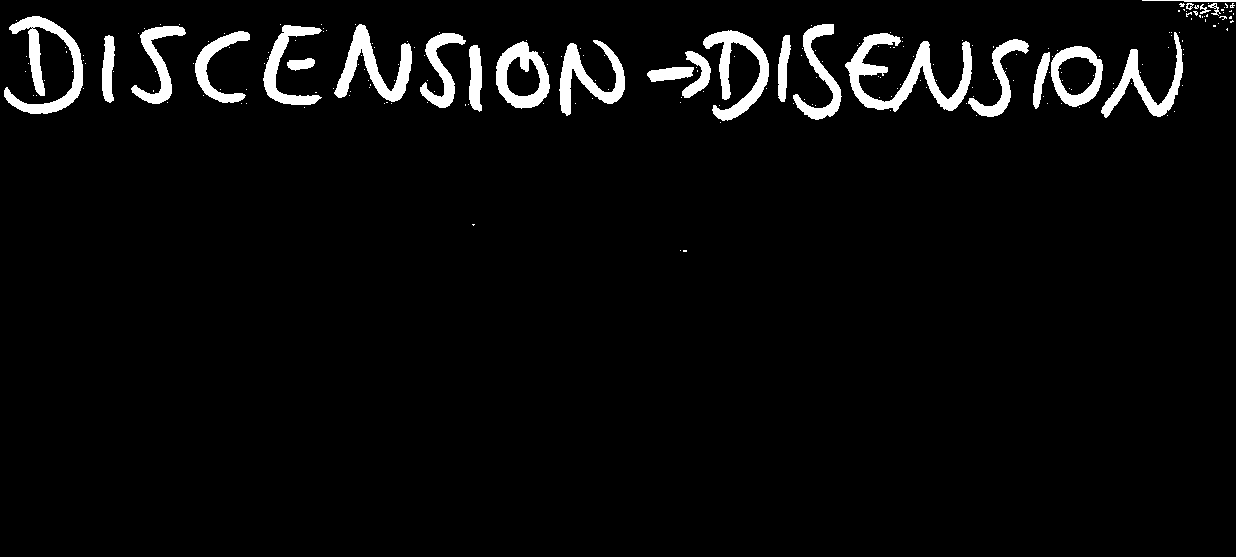 DISCENSION → DISENSION